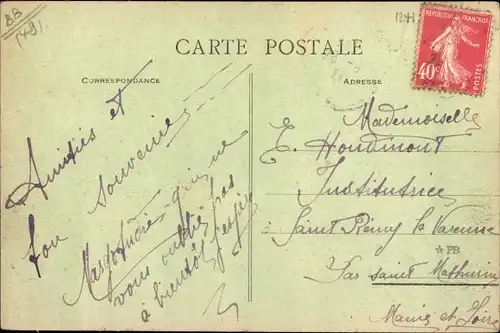 BB
(49)
CARTE POSTALE
CORRESPONDANCE
ADRESSE
REPUBLIQUE FRANÇAISE
40c
POSTES
Amitiés et
bon souvenir
qui ne
vous oublie pas
à bientôt
Mademoiselle
E. Houdmont
Institutrice
Saint Rémy la Varenne
*PB
Par saint Mathurin
Maine et Loire